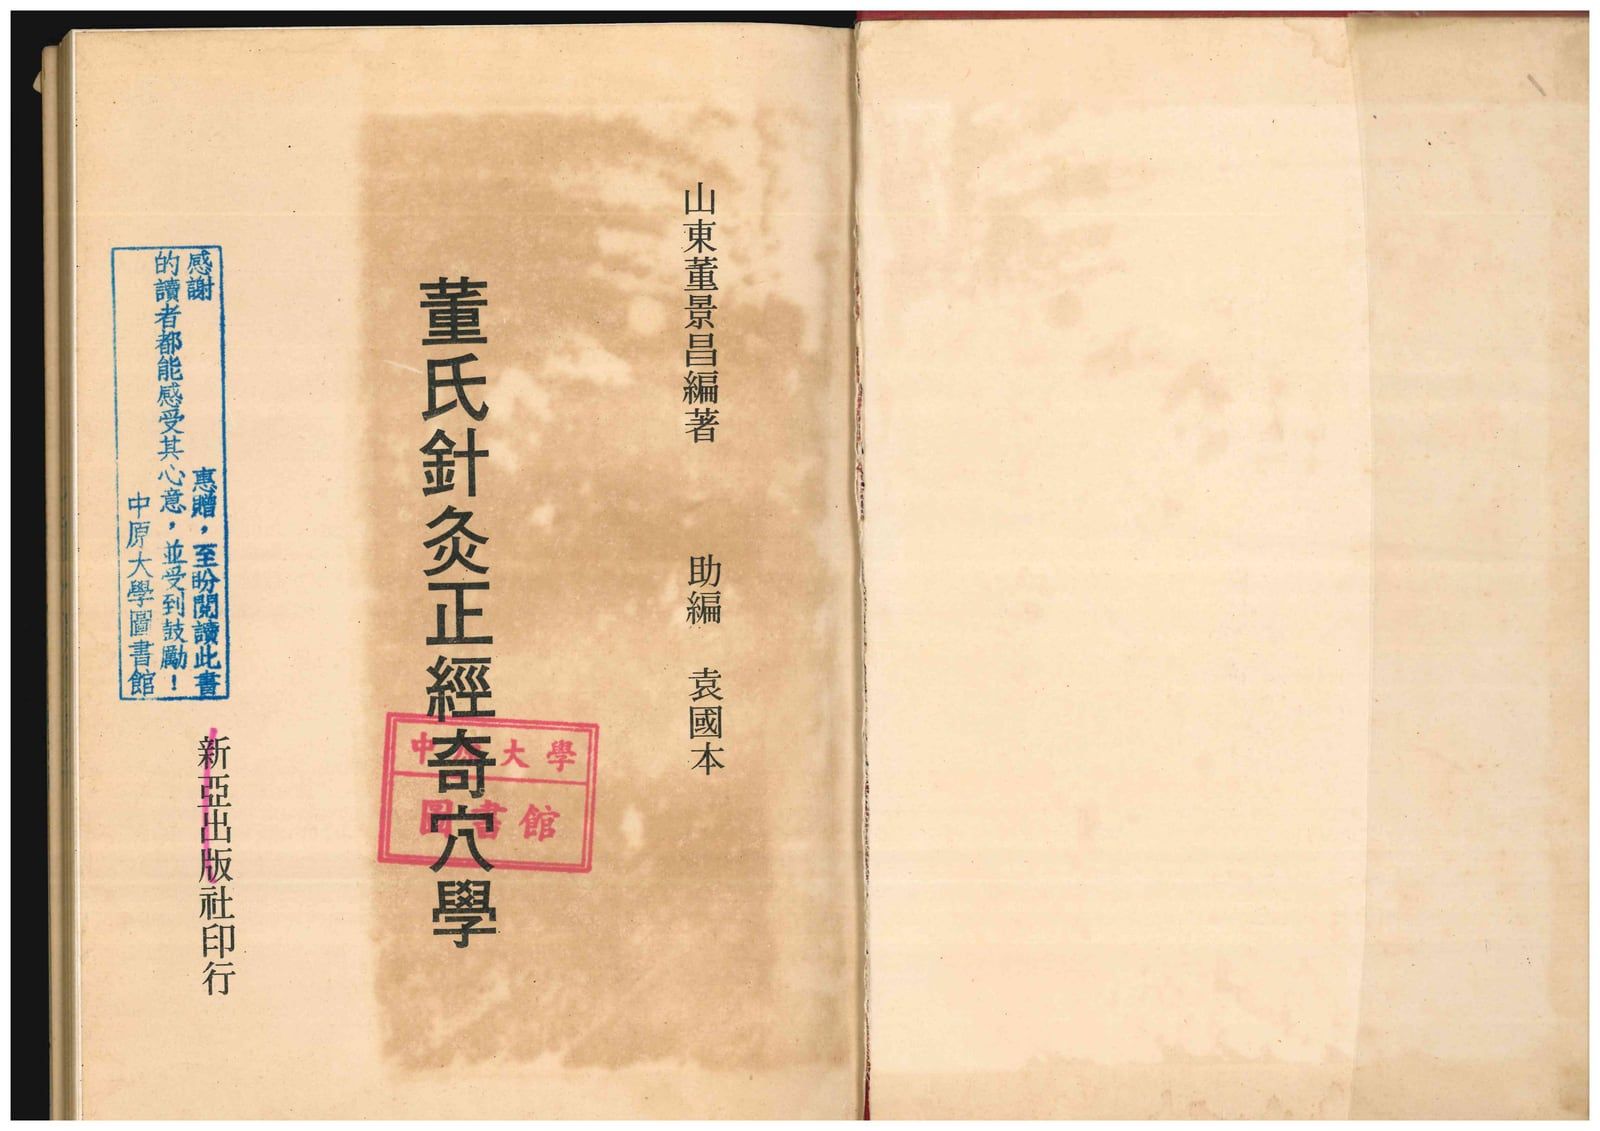 山東董景昌編著　助編　袁國本
董氏針灸正經奇穴學
中原大學
圖書館
新亞出版社印行
感謝　惠贈，至盼閱讀此書
的讀者都能感受其心意，並受到鼓勵！
中原大學圖書館